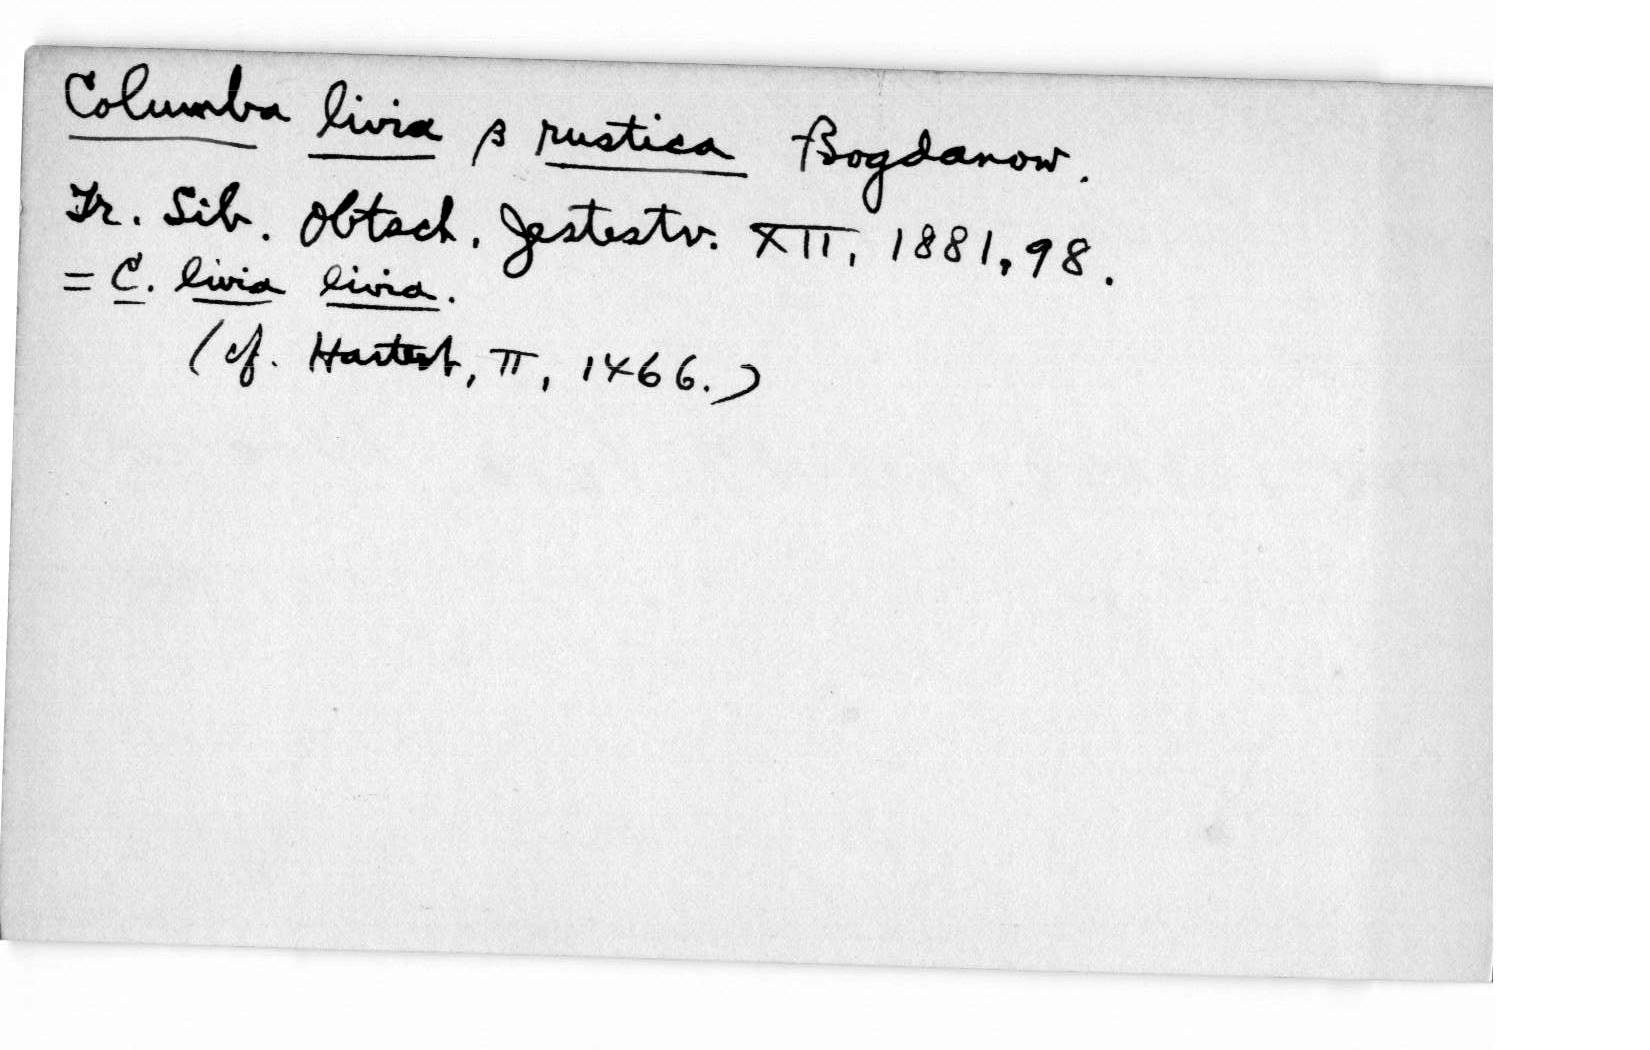 Columba livia β rustica Bogdanow.
Tr. Sib. Obtsch. Jestestv. XII, 1881, 98.
= C. livia livia.
(cf. Hartert, II, 1466.)